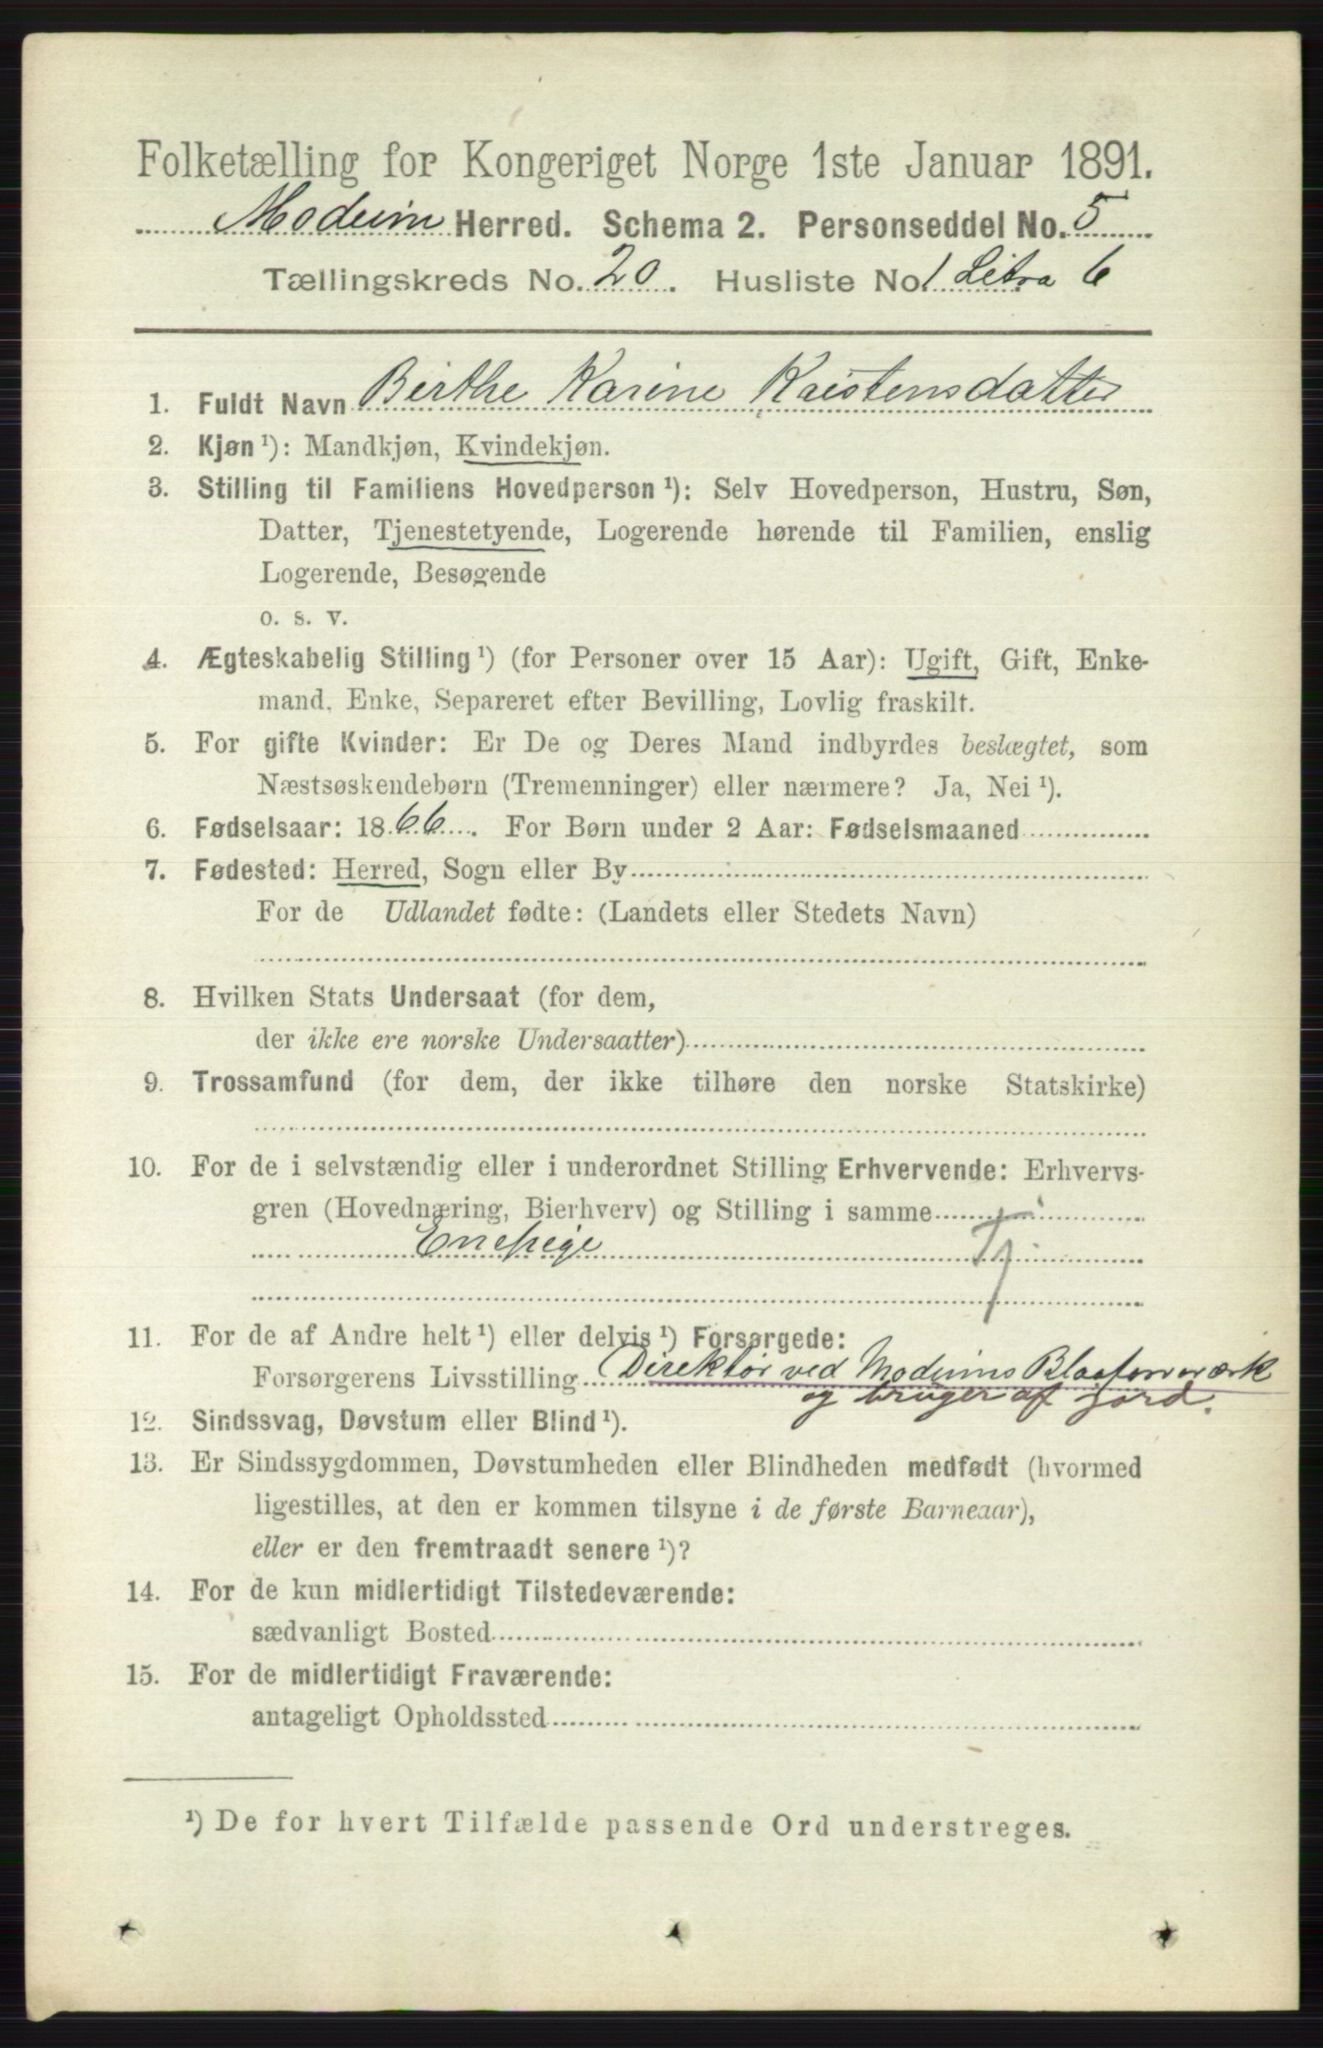 Folketælling for Kongeriget Norge 1ste Januar 1891.
Modum Herred. Schema 2. Personseddel No. 5
Tællingskreds No. 20. Husliste No. 1 Litra 6
1. Fuldt Navn Birthe Karine Kristensdatter
2. Kjøn ¹): Mandkjøn, Kvindekjøn.
3. Stilling til Familiens Hovedperson ¹): Selv Hovedperson, Hustru, Søn,
Datter, Tjenestetyende, Logerende hørende til Familien, enslig
Logerende, Besøgende
o. s. v.
4. Ægteskabelig Stilling ¹) (for Personer over 15 Aar): Ugift, Gift, Enke-
mand, Enke, Separeret efter Bevilling, Lovlig fraskilt.
5. For gifte Kvinder: Er De og Deres Mand indbyrdes beslægtet, som
Næstsøskendebørn (Tremenninger) eller nærmere? Ja, Nei ¹).
6. Fødselsaar: 1866. For Børn under 2 Aar: Fødselsmaaned
7. Fødested: Herred, Sogn eller By
For de Udlandet fødte: (Landets eller Stedets Navn)
8. Hvilken Stats Undersaat (for dem,
der ikke ere norske Undersaatter)
9. Trossamfund (for dem, der ikke tilhøre den norske Statskirke)
10. For de i selvstændig eller i underordnet Stilling Erhvervende: Erhvervs-
gren (Hovednæring, Bierhverv) og Stilling i samme
Enepige Tj
11. For de af Andre helt ¹) eller delvis ¹) Forsørgede:
Forsørgerens Livsstilling Direktør ved Modums Blaafarveværk
og bruger af jord.
12. Sindssvag, Døvstum eller Blind ¹).
13. Er Sindssygdommen, Døvstumheden eller Blindheden medfødt (hvormed
ligestilles, at den er kommen tilsyne i de første Barneaar),
eller er den fremtraadt senere ¹)?
14. For de kun midlertidigt Tilstedeværende:
sædvanligt Bosted
15. For de midlertidigt Fraværende:
antageligt Opholdssted
¹) De for hvert Tilfælde passende Ord understreges.